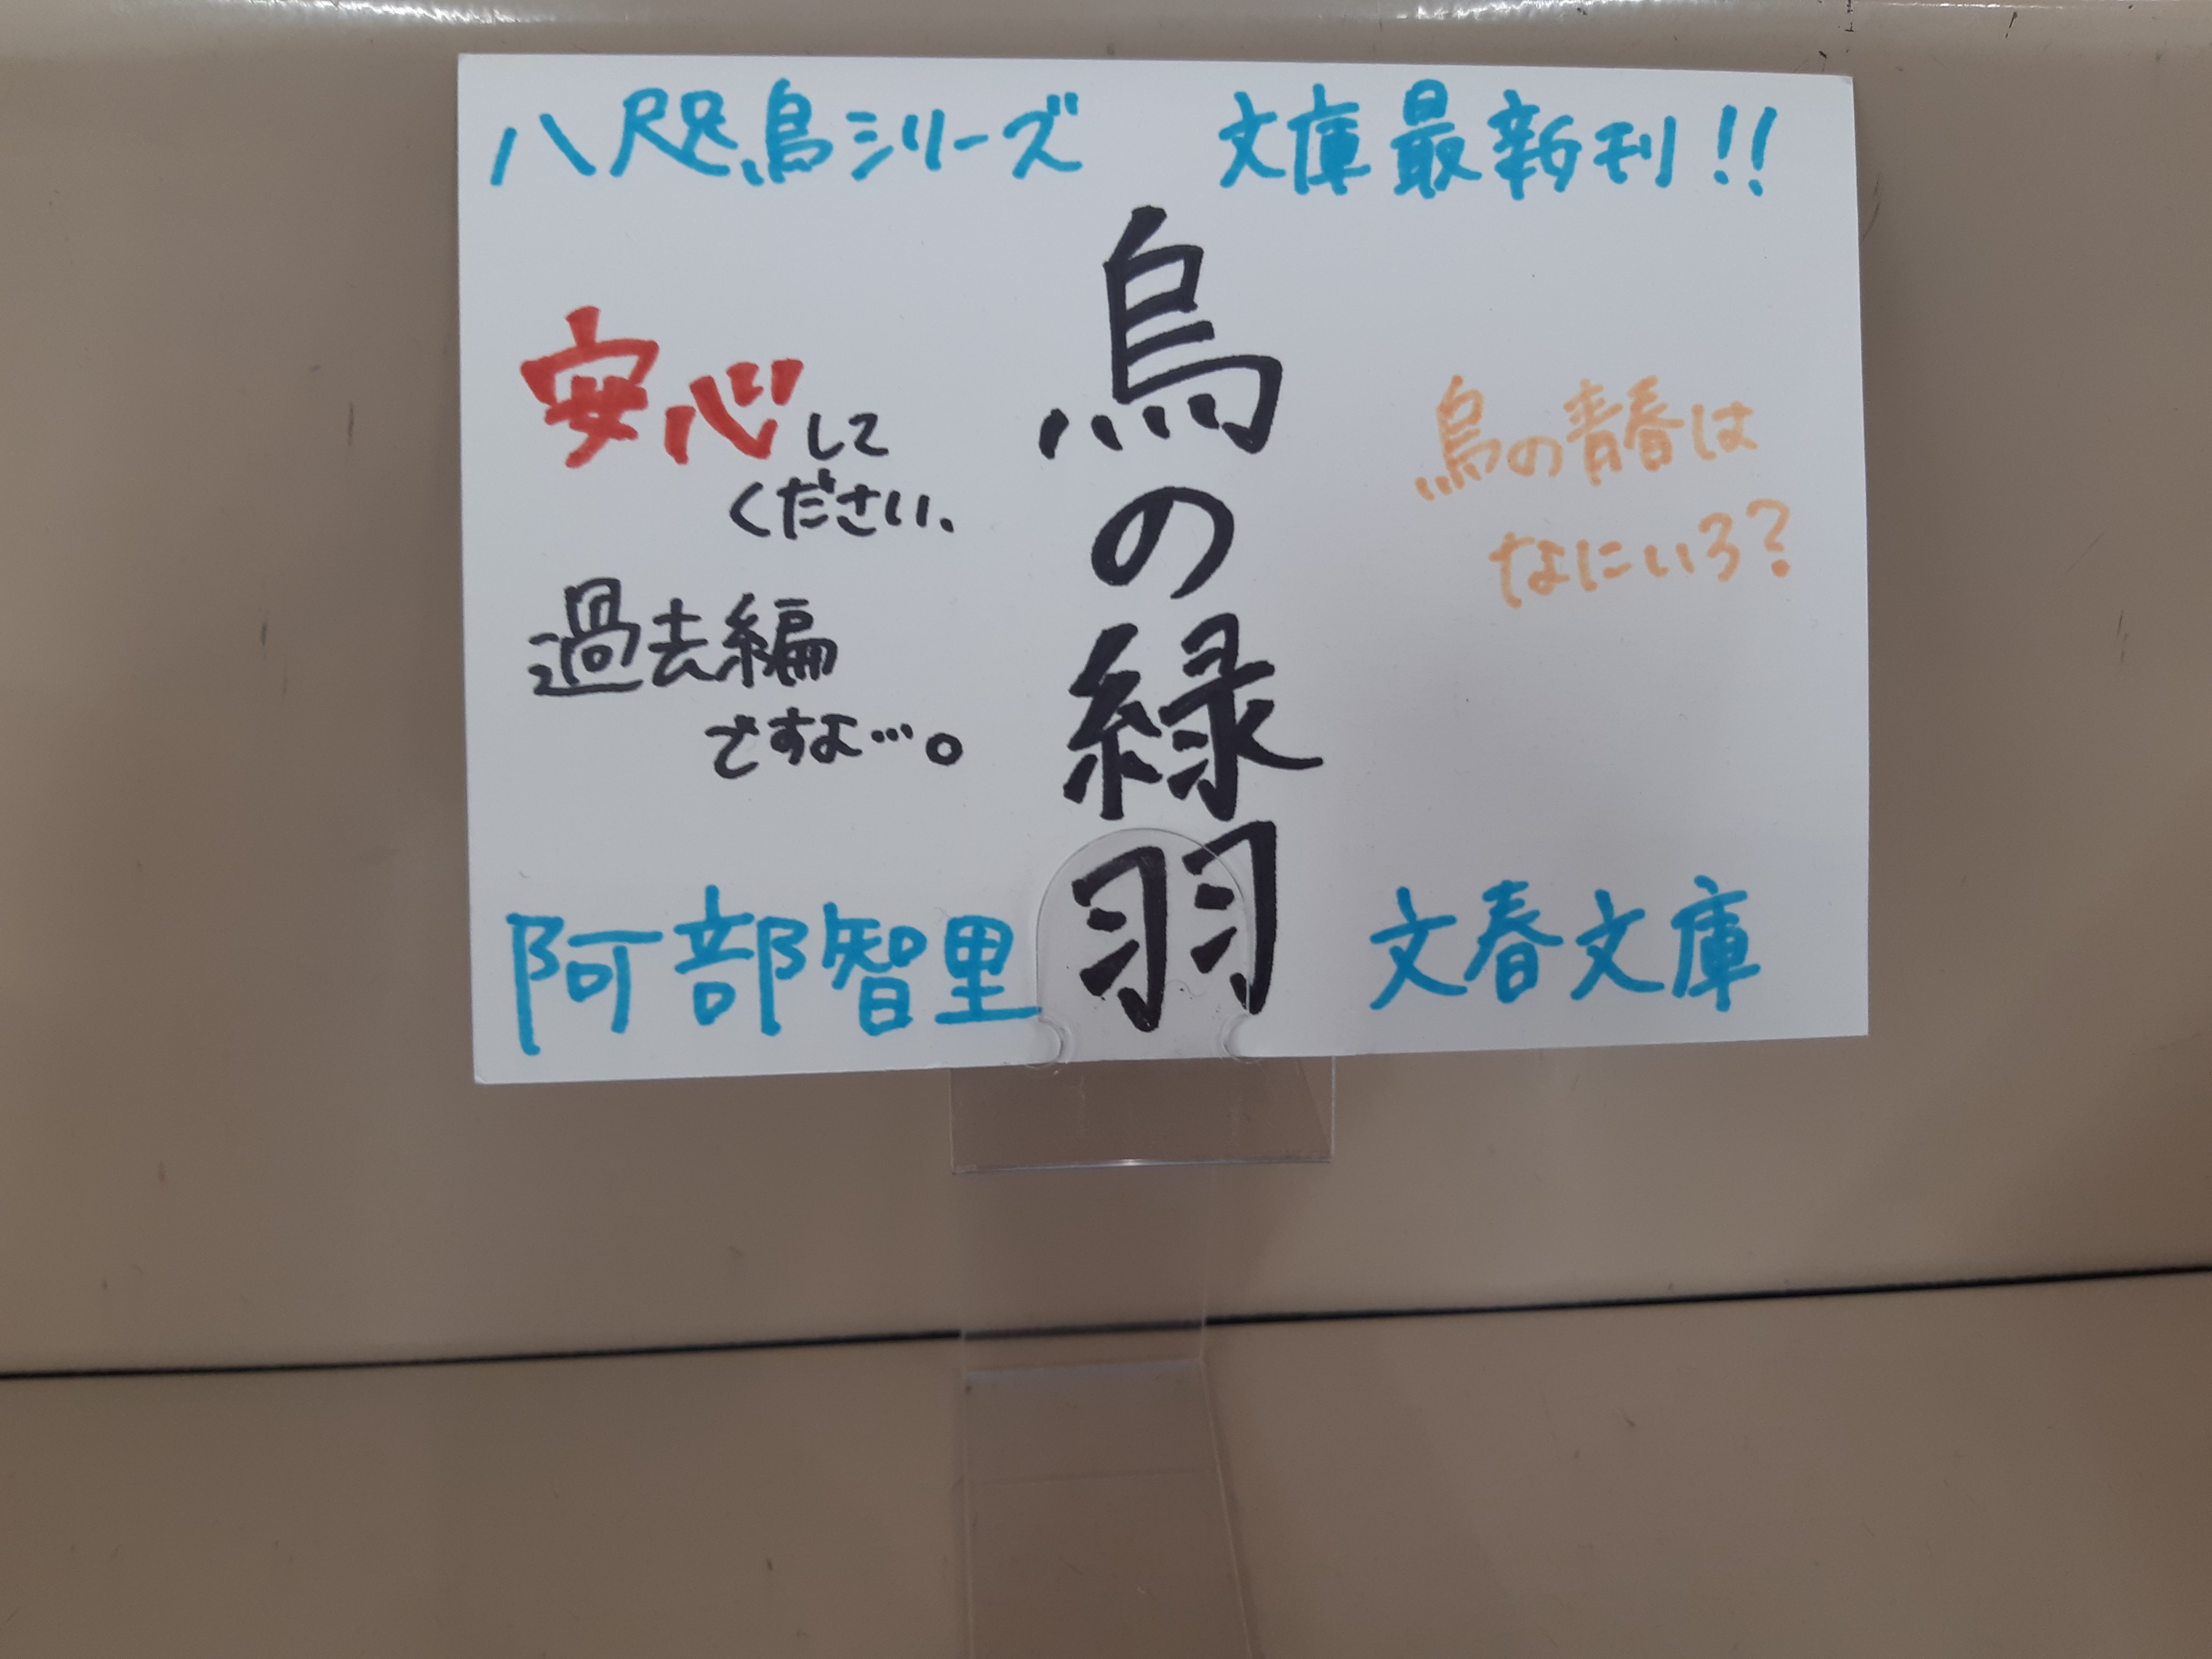 八咫烏シリーズ 文庫最新刊!!
烏の緑羽
烏の青春は
なにいろ?
安心して
ください、
過去編
ですよ…。
阿部智里
文春文庫